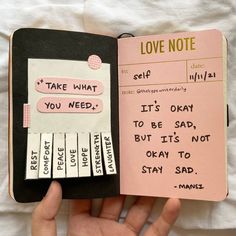 TAKE WHAT
YOU NEED
REST
COMFORT
PEACE
LOVE
HOPE
STRENGTH
LAUGHTER
LOVE NOTE
to: self
date: 11/11/21
note:
IT'S OKAY
TO BE SAD,
BUT IT'S NOT
OKAY TO
STAY SAD.
- MANSI